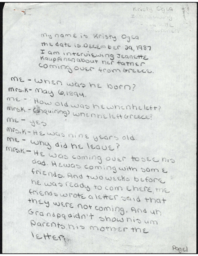 My name is Kristy Ogle
The date is December 29, 1987
I am interviewing Jeanette
Kaupking about her father
coming over from Greece.
me - when was he born?
mrs.K - May 4, 1904.
me - How old was he when he left?
mrs.K - (inquiring) when he left Greece?
me - yes
mrs.K - He was nine years old.
me - Why did he leave?
mrs.K - He was coming over to see his
dad. He was coming with some
friends. And two weeks before
he was ready to come here the
friends wrote a letter said that
they were not coming. And uh
Grandpa didn't show his um
parents his mother the
letter.